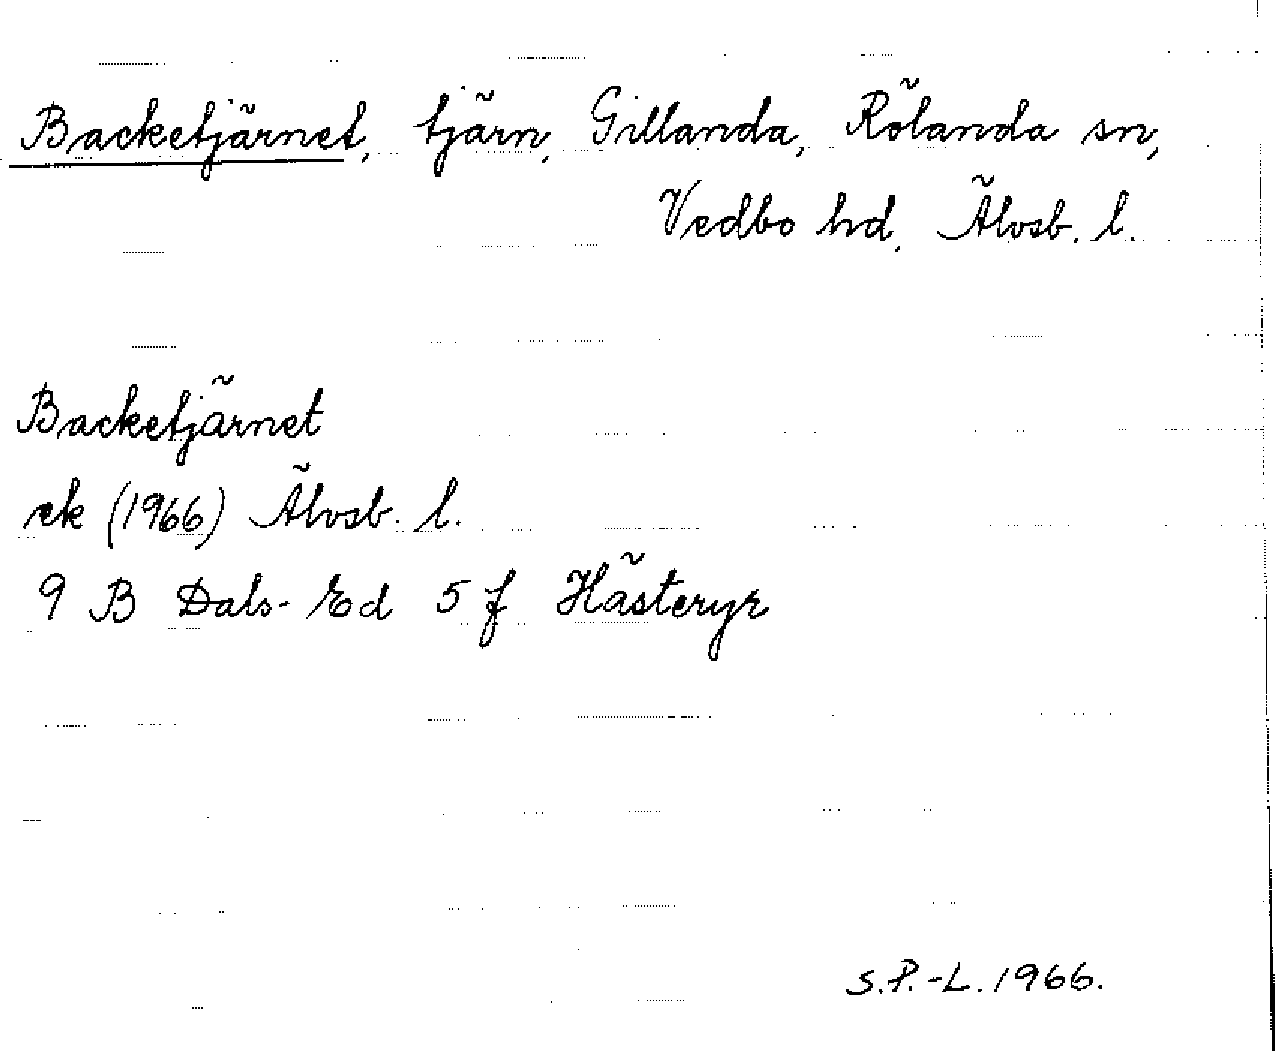 Backetjärnet, tjärn, Gillanda, Rölanda sn,
Vedbo hd, Älvsb. l.
Backetjärnet
ek (1966) Älvsb. l.
9 B Dals-Ed 5 f Hästeryr
S.P.-L. 1966.